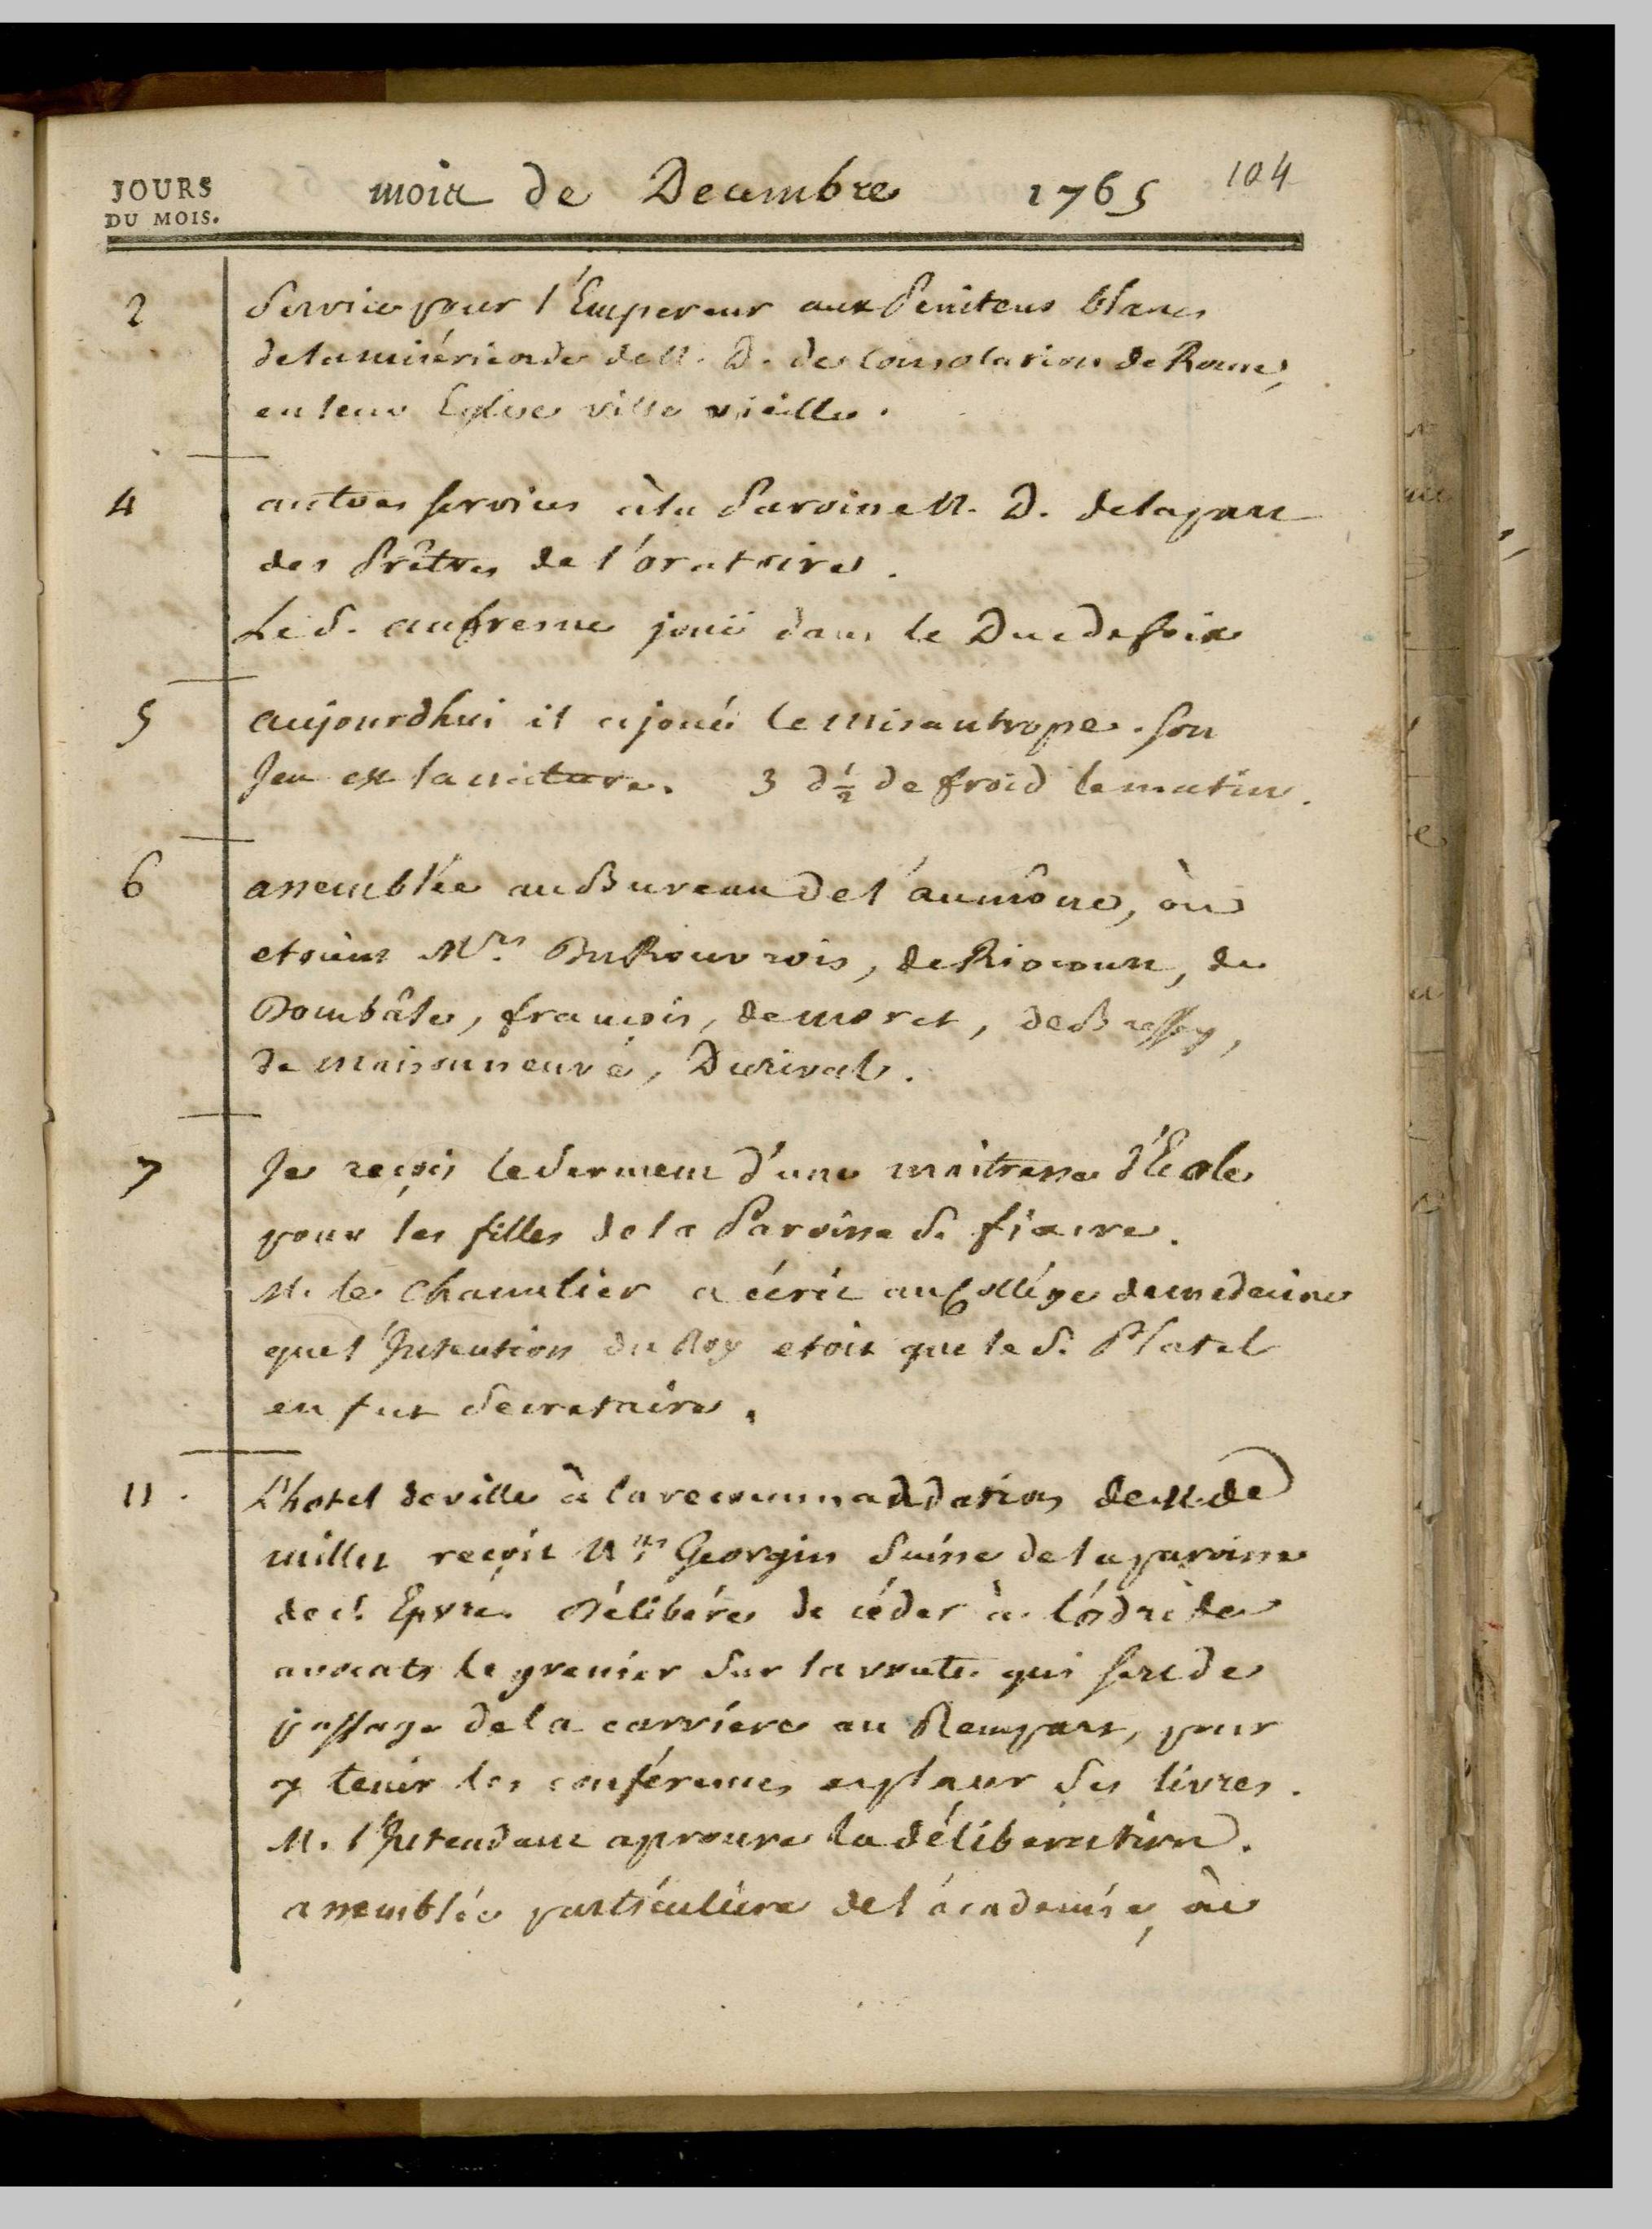 JOURS
DU MOIS.
mois de Decembre 1765
104
2 Service pour l'Empereur aux Penitens blancs
de la miséricorde de N. D. de Consolation de Rome,
en leur Eglise ville vieille.
4 autres services à la Paroisse N. D. de la part
des Prêtres de l'oratoire.
Le S. aufresne joue dans le Duc de foix
5 aujourdhui il a joué le misantrope. son
Jeu est la nature. 3 d ½ de froid le matin.
6 assemblée au Bureau de l'aumône, où
etoient Mrs. DuRouvrois, de Riocourt, de
Dombâle, françois, de moret, de Bressey,
de maisonneuve, Durival.
7 Je reçois le serment d'une maitresse d'Ecole
pour les filles de la Paroisse S. fiacre.
M. le Chancelier a écrit au Collége de medecine
que l'Intention du Roy etoit que le S. Platel
en fut Secretaire.
11. L'hotel de ville à la recommandation de M. de
millet reçoit Georgin Suisse de la paroisse
de S. Epvre. Délibére de céder à l'ordre des
avocats le grenier sur la voute qui sert de
passage de la carriere au Rempart, pour
y tenir les conférences et placer ses livres.
M. l'Intendant aprouve la déliberation.
assemblée particuliere de l'académie, où